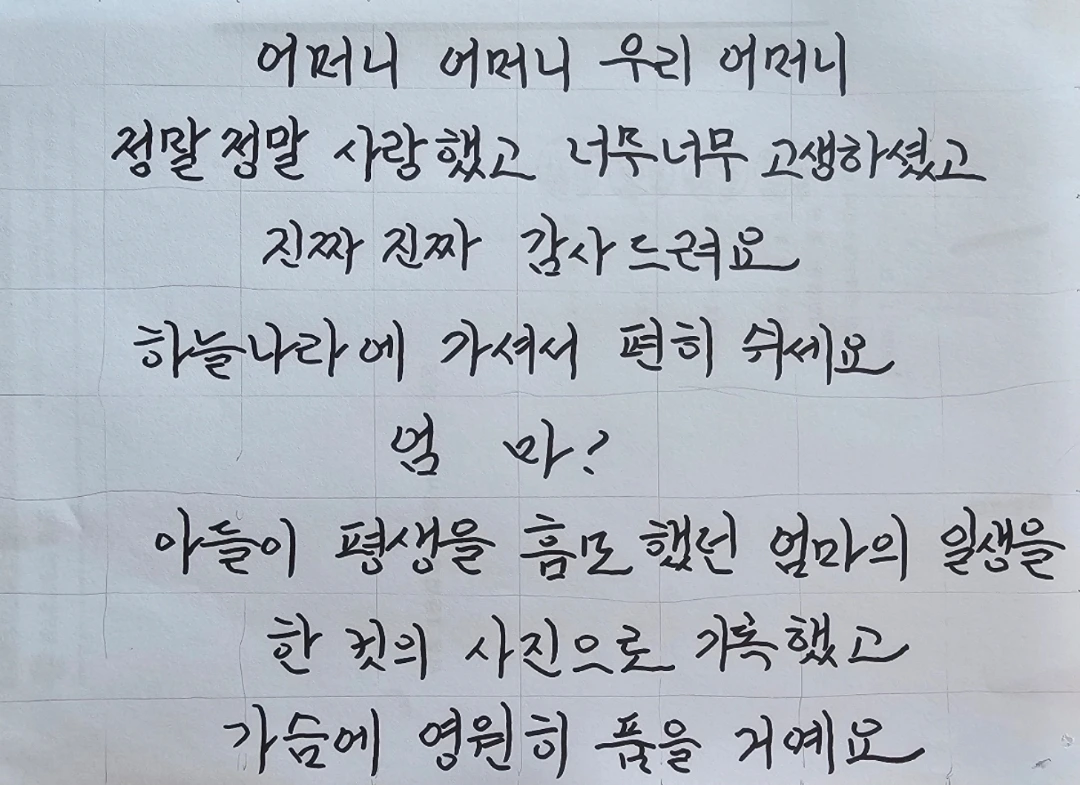 어머니 어머니 우리 어머니
정말 정말 사랑했고 너무너무 고생하셨고
진짜 진짜 감사드려요
하늘나라에 가셔서 편히 쉬세요
엄 마?
아들이 평생을 흠모했던 엄마의 일생을
한 컷의 사진으로 기록했고
가슴에 영원히 품을 거예요